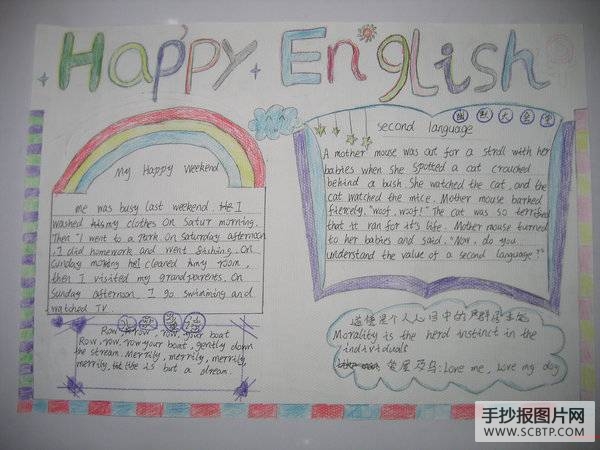 Happy English
My Happy Weekend
me was busy last weekend. He I
washed his my clothes on Satur morning.
Then "I went to a park. On Saturday afternoon
, I did homework and went fishing. On
Sunday morning he I cleared his my room,
then I visited my grandparents. On
Sunday afternoon I go swimming and
watched TV
Row, row, row your boat
Row, row, row your boat, gently down
the stream. Merrily, merrily, merrily,
merrily, life is but a dream.
幽默大全
second language
A mother mouse was out for a stroll with her
babies when she spotted a cat crouched
behind a bush. She watched the cat, and the
cat watched the mice. Mother mouse barked
fiercely, "Woof, woof!" The cat was so terrified
that it ran for it's life. Mother mouse turned
to her babies and said. "Now, do you
understand the value of a second language?"
道德是个人心目中的
Morality is the herd instinct in the
individual
爱屋及乌: Love me, love my dog
手抄报图片网
WWW.SCBTP.COM